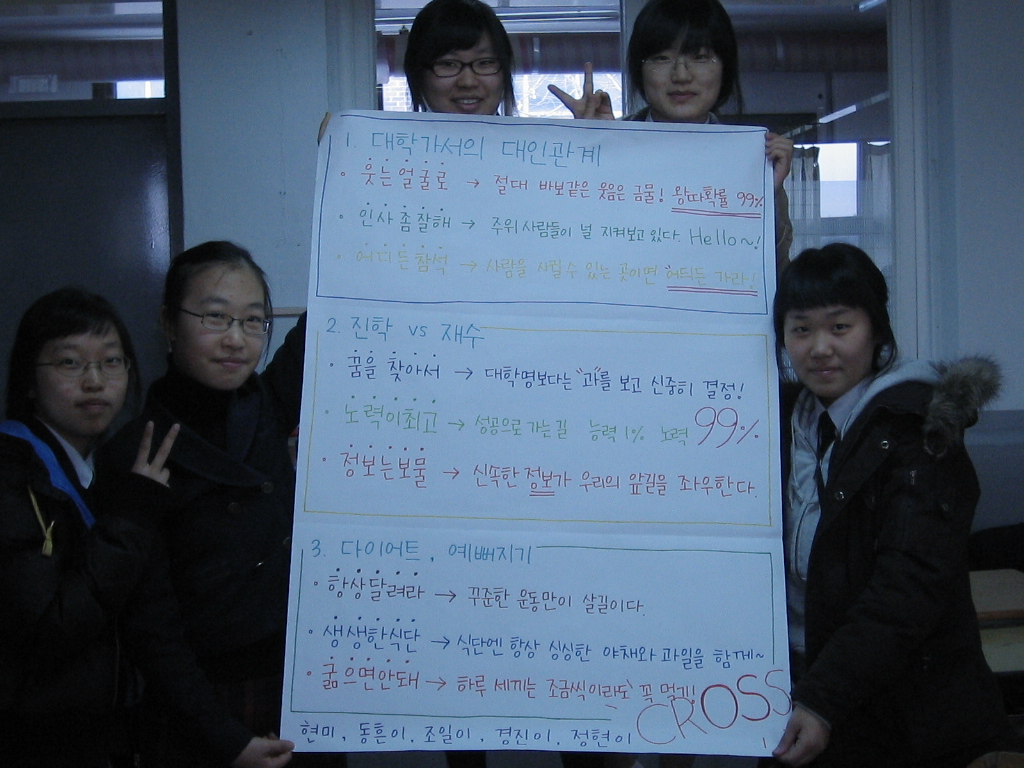 1. 대학가서의 대인관계
· 웃는얼굴로 → 절대 바보같은 웃음은 금물! 왕따확률 99%
· 인사좀잘해 → 주위 사람들이 널 지켜보고 있다. Hello~!
· 어디든참석 → 사람을 사귈수 있는 곳이면 어딕든 가라!
2. 진학 vs 재수
· 꿈을 찾아서 → 대학명보다는 "과"를 보고 신중히 결정!
· 노력이최고 → 성공으로 가는길 능력 1% 노력 99%
· 정보는보물 → 신속한 정보가 우리의 앞길을 좌우한다.
3. 다이어트, 예뻐지기
· 항상달려라 → 꾸준한 운동만이 살길이다.
· 생생한식단 → 식단엔 항상 싱싱한 야채와 과일을 함께~
· 굶으면안돼 → 하루 세끼는 조금씩이라도 꼭 먹기!
CROSS
현미, 동흔이, 조일이, 경진이, 정현이